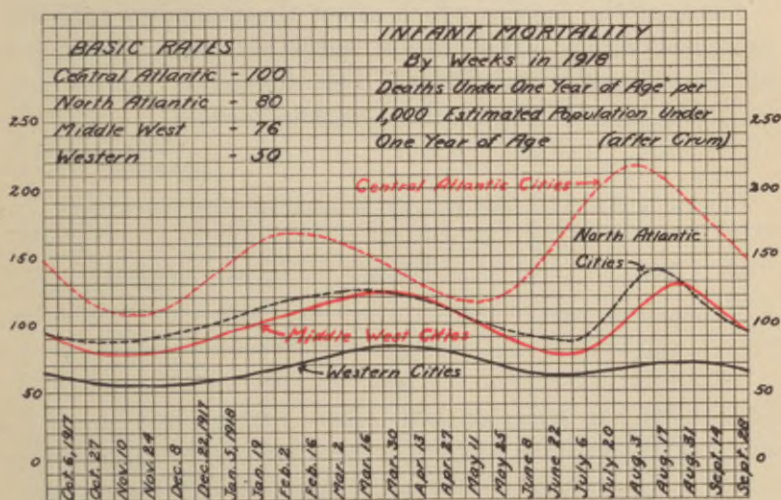 BASIC RATES
Central Atlantic - 100
North Atlantic - 80
Middle West - 76
Western - 50
INFANT MORTALITY
By Weeks in 1918
Deaths Under One Year of Age per
1,000 Estimated Population Under
One Year of Age (after Crum)
250
200
150
100
50
0
250
200
150
100
50
0
Central Atlantic Cities
North Atlantic
Cities
Middle West Cities
Western Cities
Oct. 6, 1917
Oct. 27
Nov. 10
Nov. 24
Dec. 8
Dec. 22, 1917
Jan. 5, 1918
Jan. 19
Feb. 2
Feb. 16
Mar. 2
Mar. 16
Mar. 30
Apr. 13
Apr. 27
May 11
May 25
June 8
June 22
July 6
July 20
Aug. 3
Aug. 17
Aug. 31
Sept. 14
Sept. 28